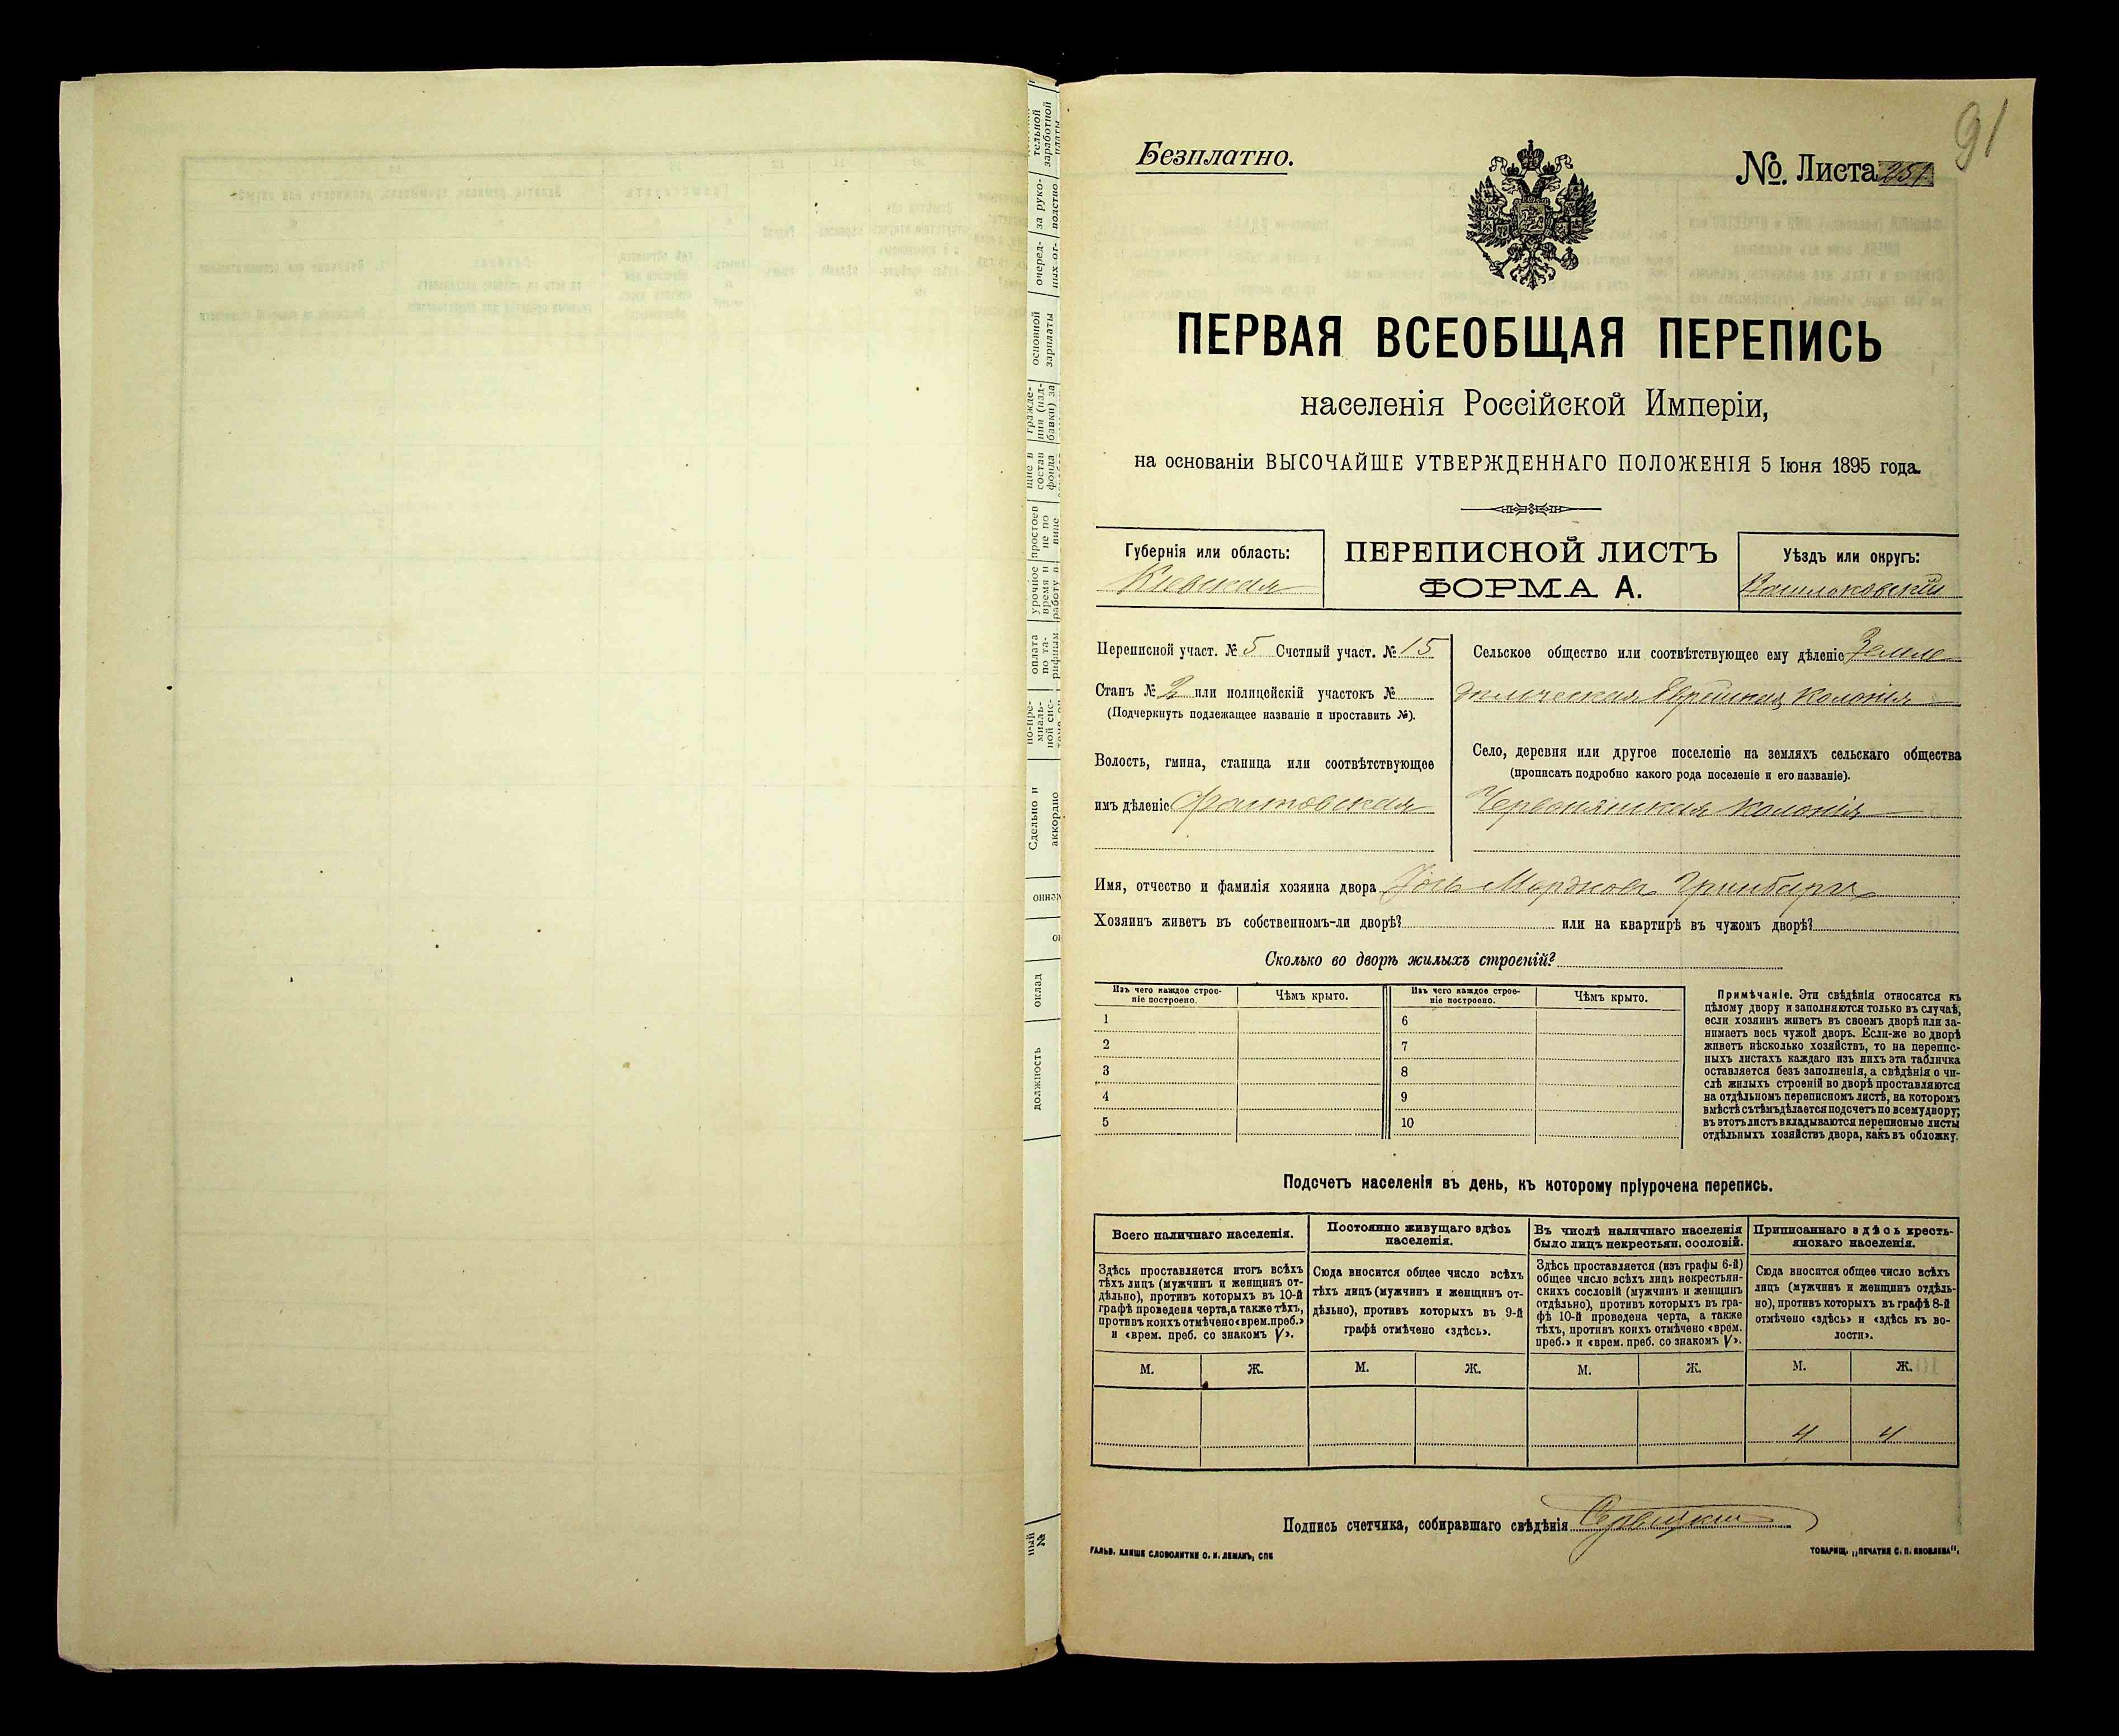 91
Безплатно.
№ Листа 251
ПЕРВАЯ ВСЕОБЩАЯ ПЕРЕПИСЬ
населенія Россійской Имперіи,
на основаніи ВЫСОЧАЙШЕ УТВЕРЖДЕННАГО ПОЛОЖЕНІЯ 5 Іюня 1895 года.
Губернія или область:
Кіевская
ПЕРЕПИСНОЙ ЛИСТЪ
ФОРМА А.
Уѣздъ или округъ:
Переписной участ. № 5 Счетный участ. № 15
Станъ № 2 или полицейскій участокъ №
(Подчеркнуть подлежащее названіе и проставить №).
Волость, гмина, станица или соотвѣтствующее
имъ дѣленіе
Сельское общество или соотвѣтствующее ему дѣленіе Земле
дельческая Еврейская колонія
Село, деревня или другое поселеніе на земляхъ сельскаго общества
(прописать подробно какого рода поселеніе и его названіе).
Червонянская колонія
Имя, отчество и фамилія хозяина двора Мордковъ Гринбаргъ
Хозяинъ живетъ въ собственномъ-ли дворѣ? или на квартирѣ въ чужомъ дворѣ?
Сколько во дворѣ жилыхъ строеній?
Изъ чего каждое строе-
ніе построено.
Чѣмъ крыто.
Изъ чего каждое строе-
ніе построено.
Чѣмъ крыто.
1
2
3
4
5
6
7
8
9
10
Примѣчаніе. Эти свѣдѣнія относятся къ
цѣлому двору и заполняются только въ случаѣ,
если хозяинъ живетъ въ своемъ дворѣ или за-
нимаетъ весь чужой дворъ. Если-же во дворѣ
живетъ нѣсколько хозяйствъ, то на перепис-
ныхъ листахъ каждаго изъ нихъ эта табличка
оставляется безъ заполненія, а свѣдѣнія о чи-
слѣ жилыхъ строеній во дворѣ проставляются
на отдѣльномъ переписномъ листѣ, на которомъ
вмѣстѣ съ тѣмъ дѣлается подсчетъ по всему двору;
въ этотъ листъ вкладываются переписные листы
отдѣльныхъ хозяйствъ двора, какъ въ обложку.
Подсчетъ населенія въ день, къ которому пріурочена перепись.
Всего наличнаго населенія.
Здѣсь проставляется итогъ всѣхъ
тѣхъ лицъ (мужчинъ и женщинъ от-
дѣльно), противъ которыхъ въ 10-й
графѣ проведена черта, а также тѣхъ,
противъ коихъ отмѣчено «врем. преб.»
и «врем. преб. со знакомъ V».
Постоянно живущаго здѣсь
населенія.
Сюда вносится общее число всѣхъ
тѣхъ лицъ (мужчинъ и женщинъ от-
дѣльно), противъ которыхъ въ 9-й
графѣ отмѣчено «здѣсь».
Въ числѣ наличнаго населенія
было лицъ некрестьян. сословій.
Здѣсь проставляется (изъ графы 6-й)
общее число всѣхъ лицъ некрестьян-
скихъ сословій (мужчинъ и женщинъ
отдѣльно), противъ которыхъ въ гра-
фѣ 10-й проведена черта, а также
тѣхъ, противъ коихъ отмѣчено «врем.
преб.» и «врем. преб. со знакомъ V».
Приписаннаго здѣсь кресть-
янскаго населенія.
Сюда вносится общее число всѣхъ
лицъ (мужчинъ и женщинъ отдѣль-
но), противъ которыхъ въ графѣ 8-й
отмѣчено «здѣсь» и «здѣсь къ во-
лости».
М. Ж. М. Ж. М. Ж. М. Ж.
4 4
Подпись счетчика, собиравшаго свѣдѣнія
ГАЛЬВ. КЛИШЕ СЛОВОЛИТНИ О. И. ЛЕМАНЪ, СПБ
ТОВАРИЩ. „ПЕЧАТНЯ С. П. ЯКОВЛЕВА“.